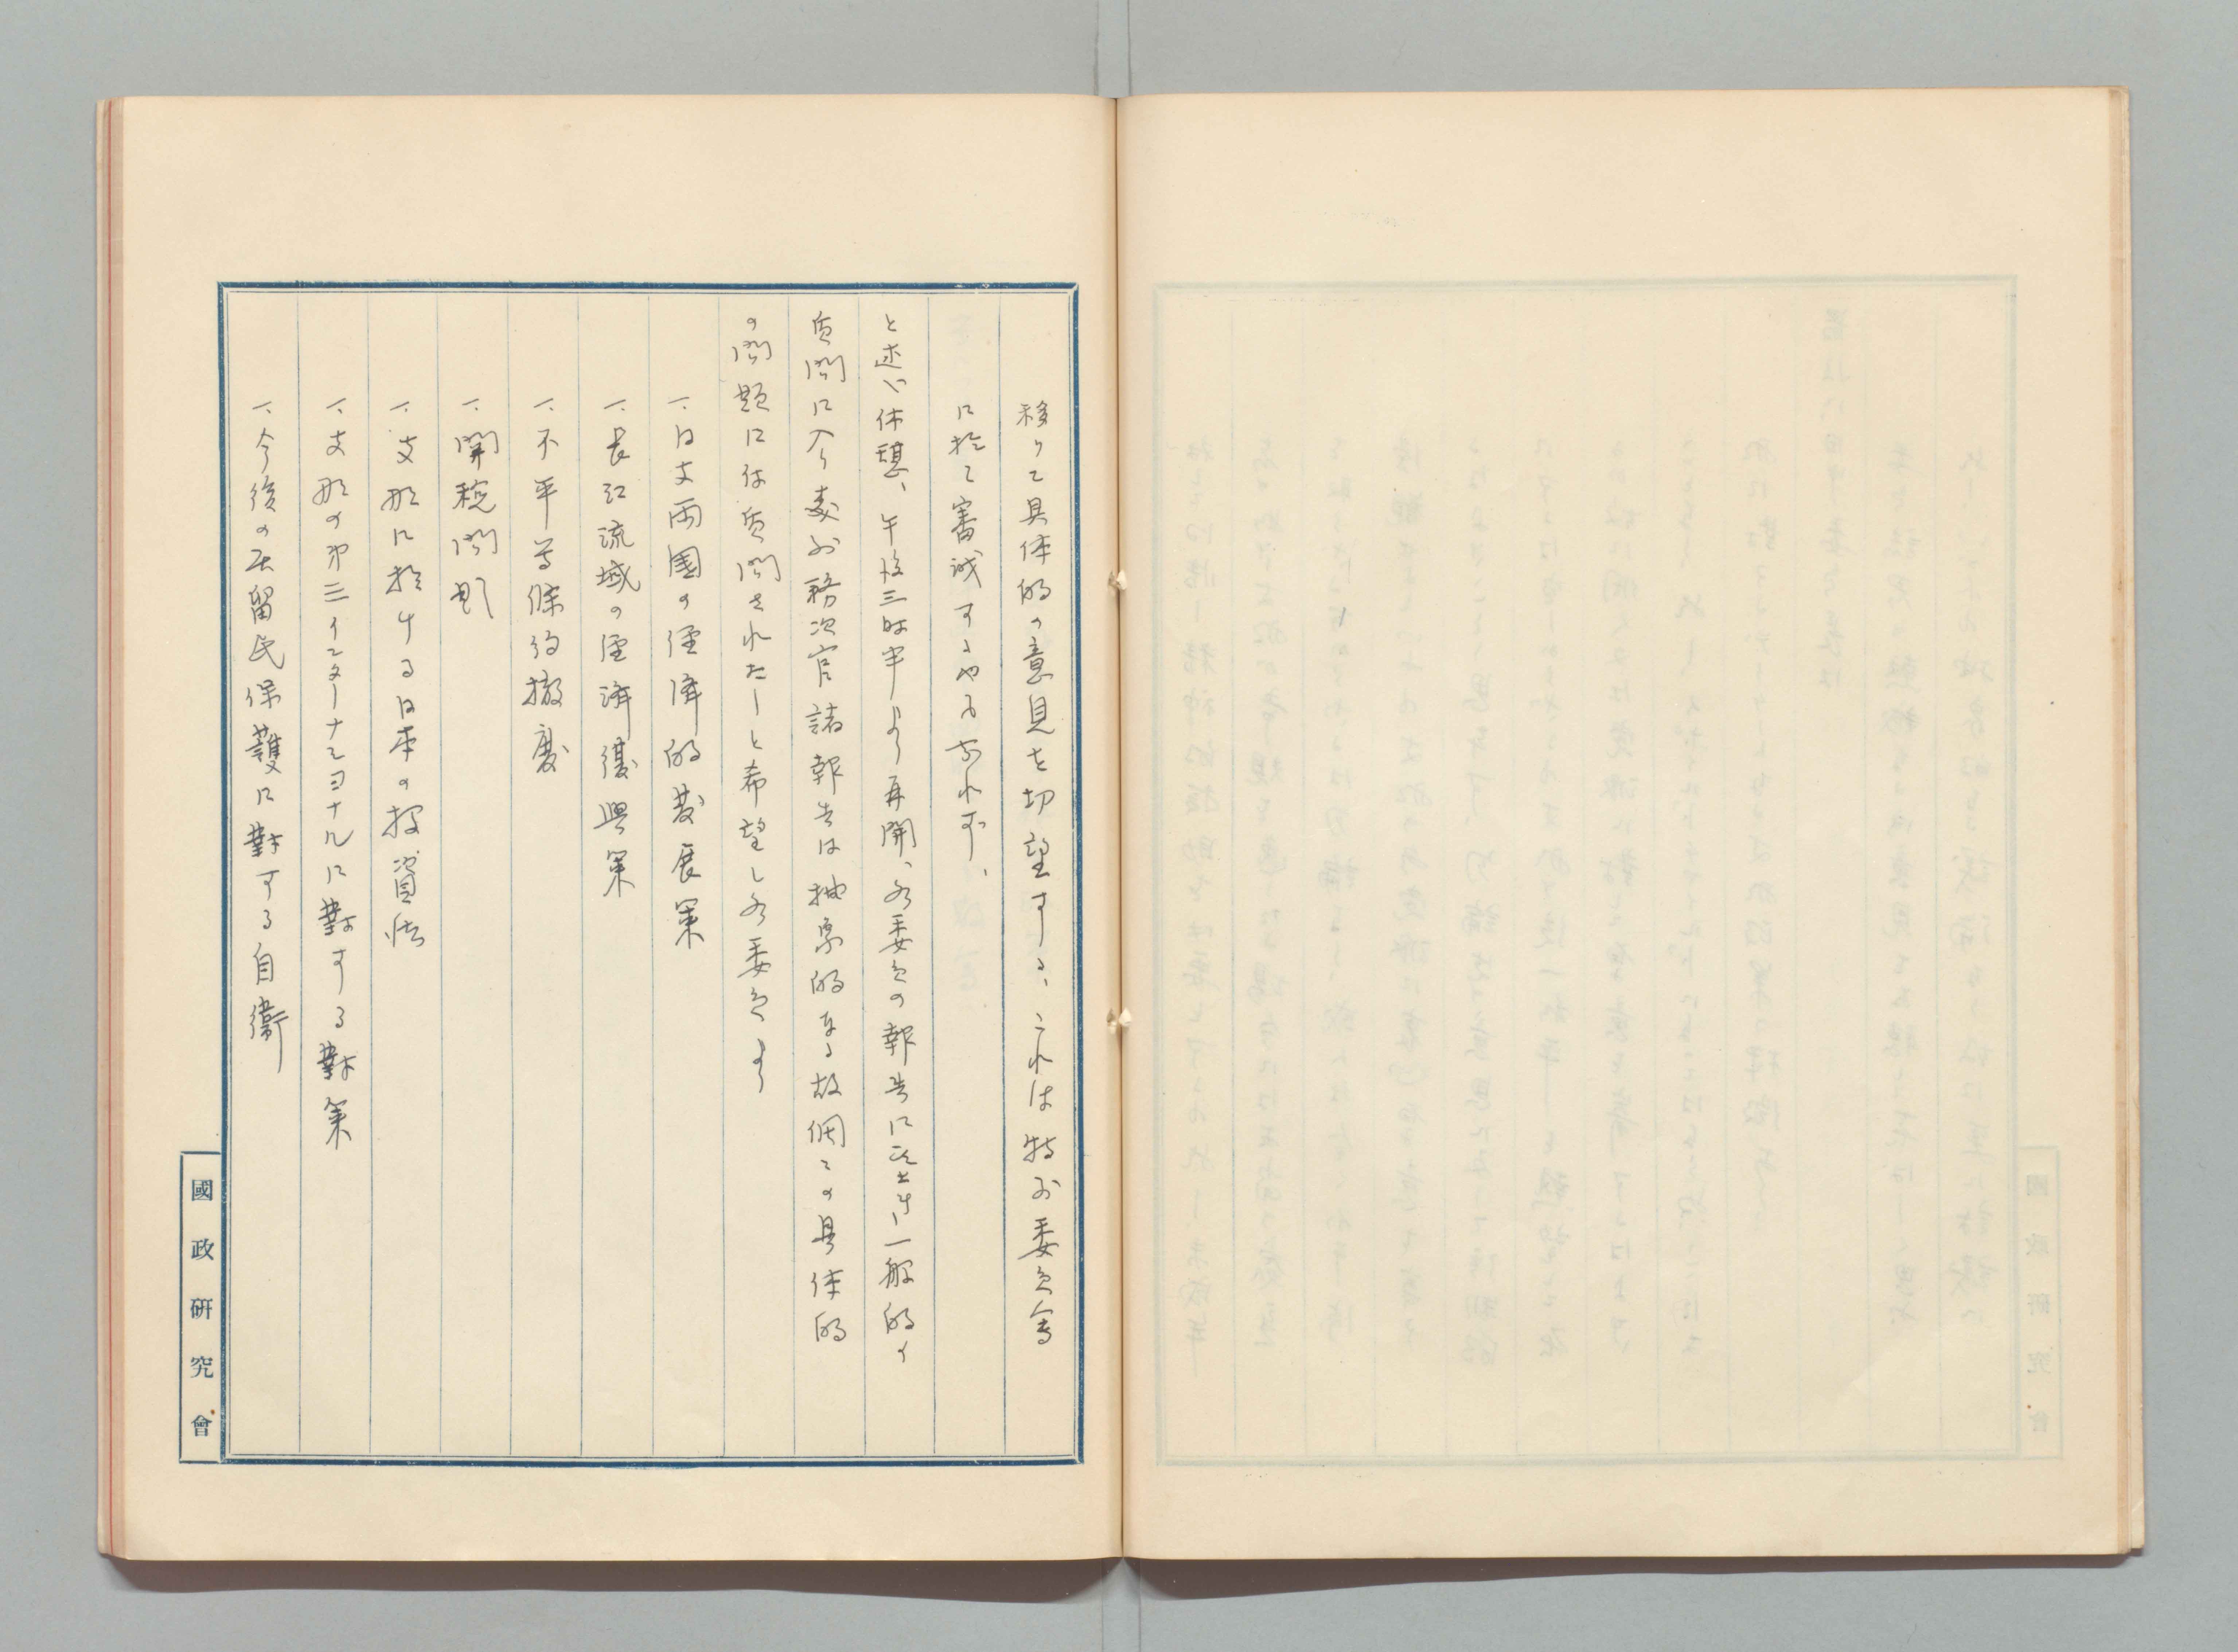 移りて具体的の意見を切望する、これは特別委員会
に於て審議するやも知れず、
と述べ休憩、午後三時半より再開、各委員の報告に一般的
質問に入り外務次官諸報告は抽象的なる故個々の具体的
の問題に付質問されたしと希望し各委員より
一、日支両國の経済的発展策
一、長江流域の経済復興策
一、不平等條約撤廢
一、関税問題
一、支那に於ける日本の投資
一、支那の第三インターナショナルに對する對策
一、今後の居留民保護に對する自衛
國政研究會